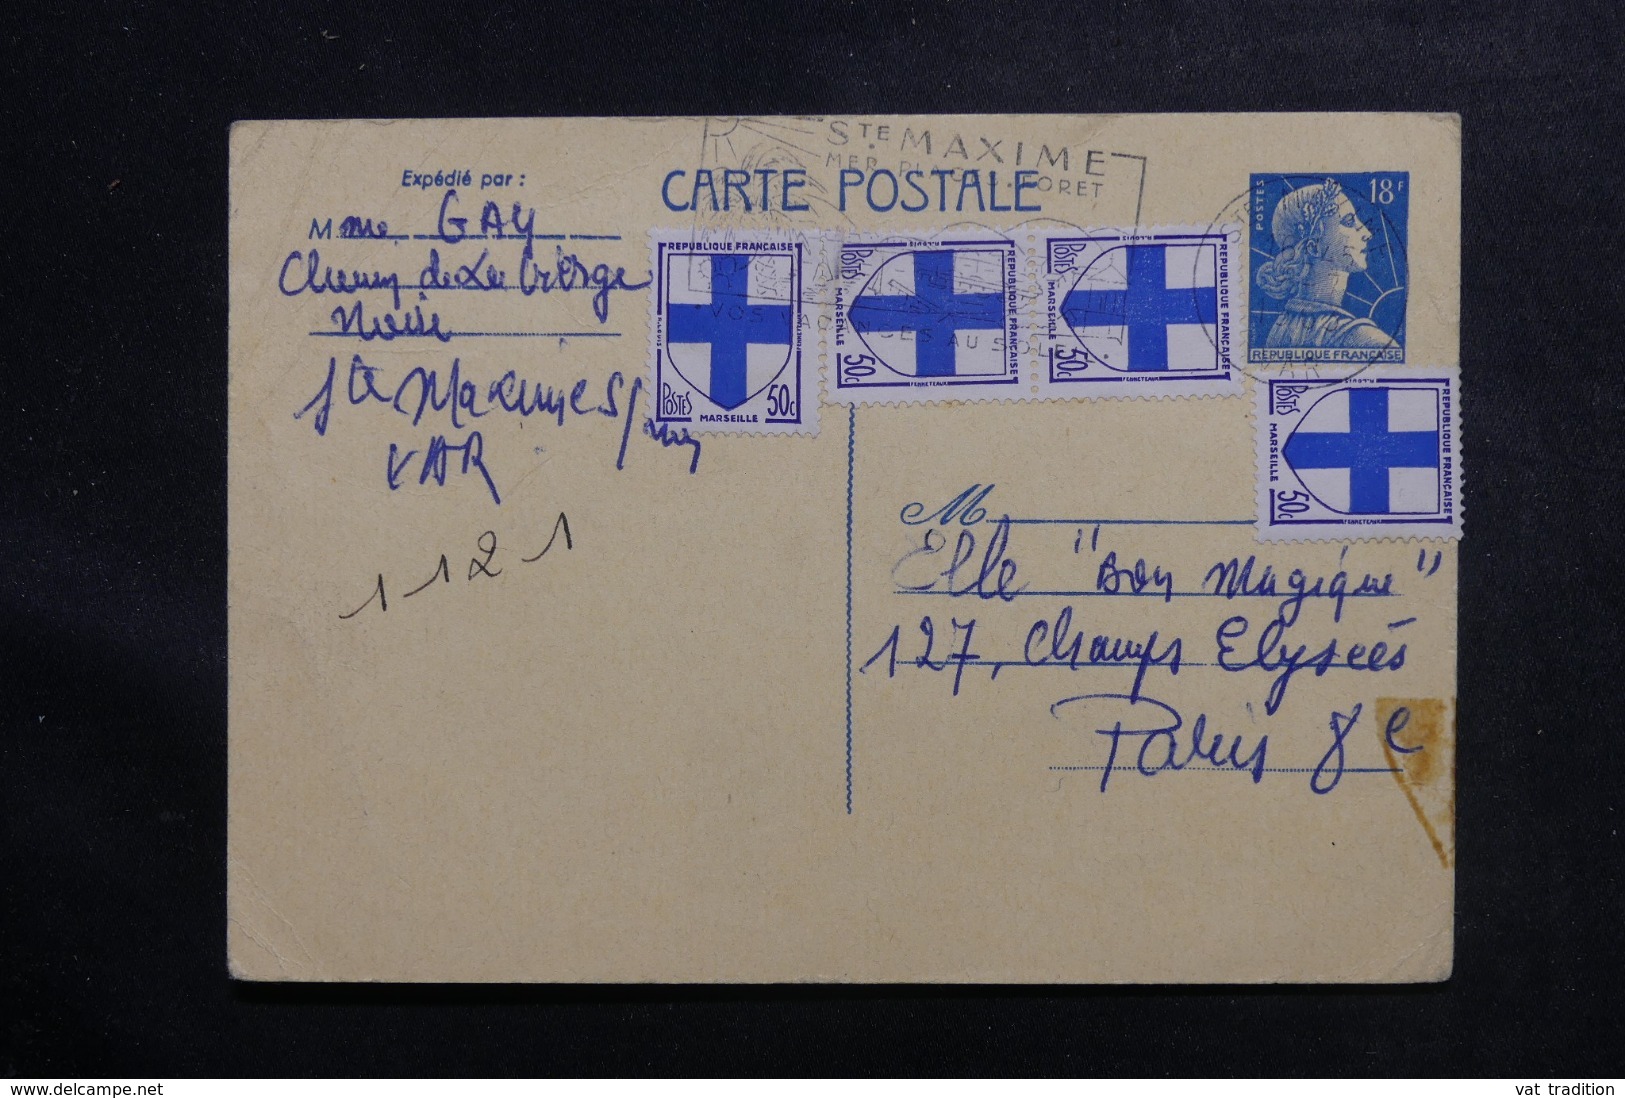 STE MAXIME
MER PLAGE FORET
VOS VACANCES AU SOLEIL
Expédié par :
CARTE POSTALE
Mme GAY
Chemin de La Vierge
Noire
Ste Maxime s/mer
VAR
1121
REPUBLIQUE FRANÇAISE
POSTES 50c
MARSEILLE
REPUBLIQUE FRANÇAISE
POSTES 50c
MARSEILLE
REPUBLIQUE FRANÇAISE
POSTES 50c
MARSEILLE
POSTES 18F
REPUBLIQUE FRANÇAISE
VAR
REPUBLIQUE FRANÇAISE
POSTES 50c
MARSEILLE
M
Elle "Bon Magique"
127, Champs Elysées
Paris 8e
www.delcampe.net
vat tradition